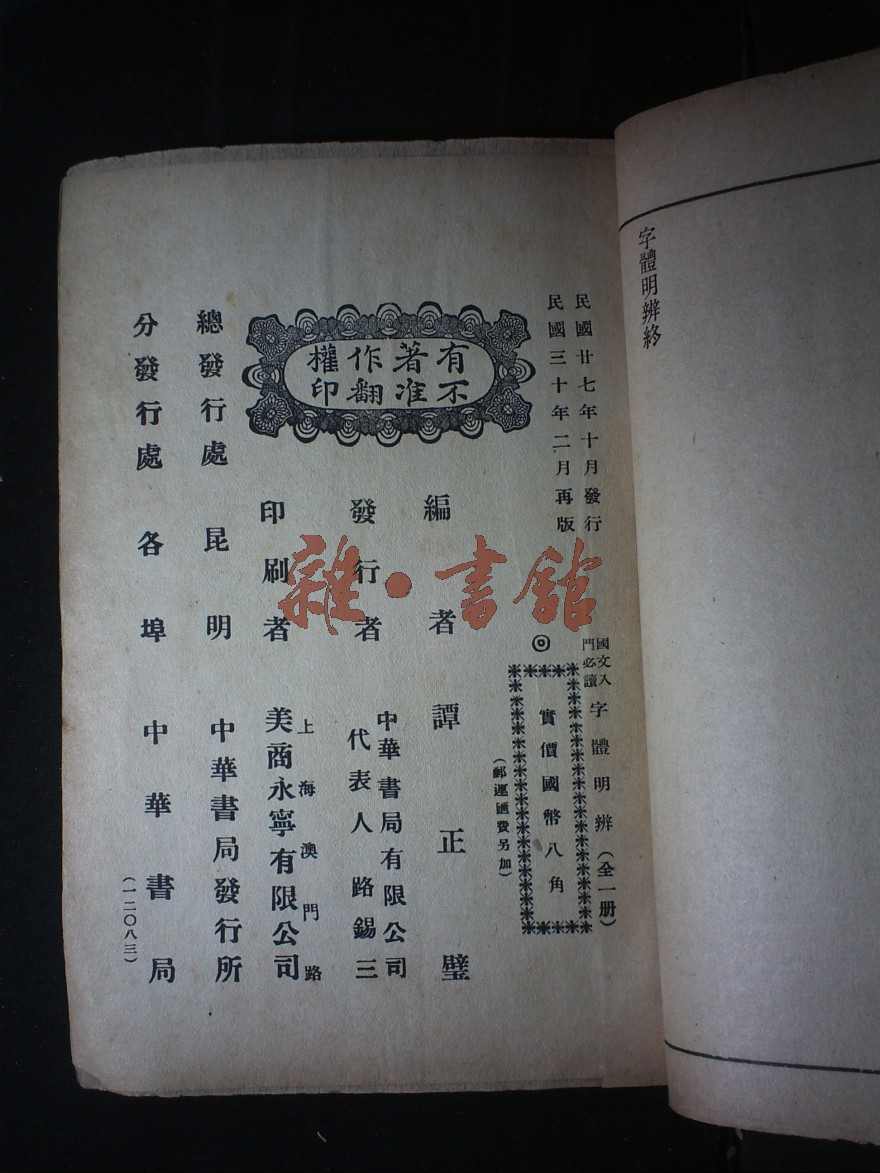 字體明辨終
民國廿七年十月發行
民國三十年二月再版
國文入門必讀
字體明辨（全一册）
◎
實價國幣八角
（郵運匯費另加）
有著作權
不准翻印
編者 譚正璧
發行者 中華書局有限公司
代表人 路錫三
印刷者 上海澳門路
美商永寧有限公司
總發行處 昆明 中華書局發行所
分發行處 各埠 中華書局
（一二〇八三）
雜·書館